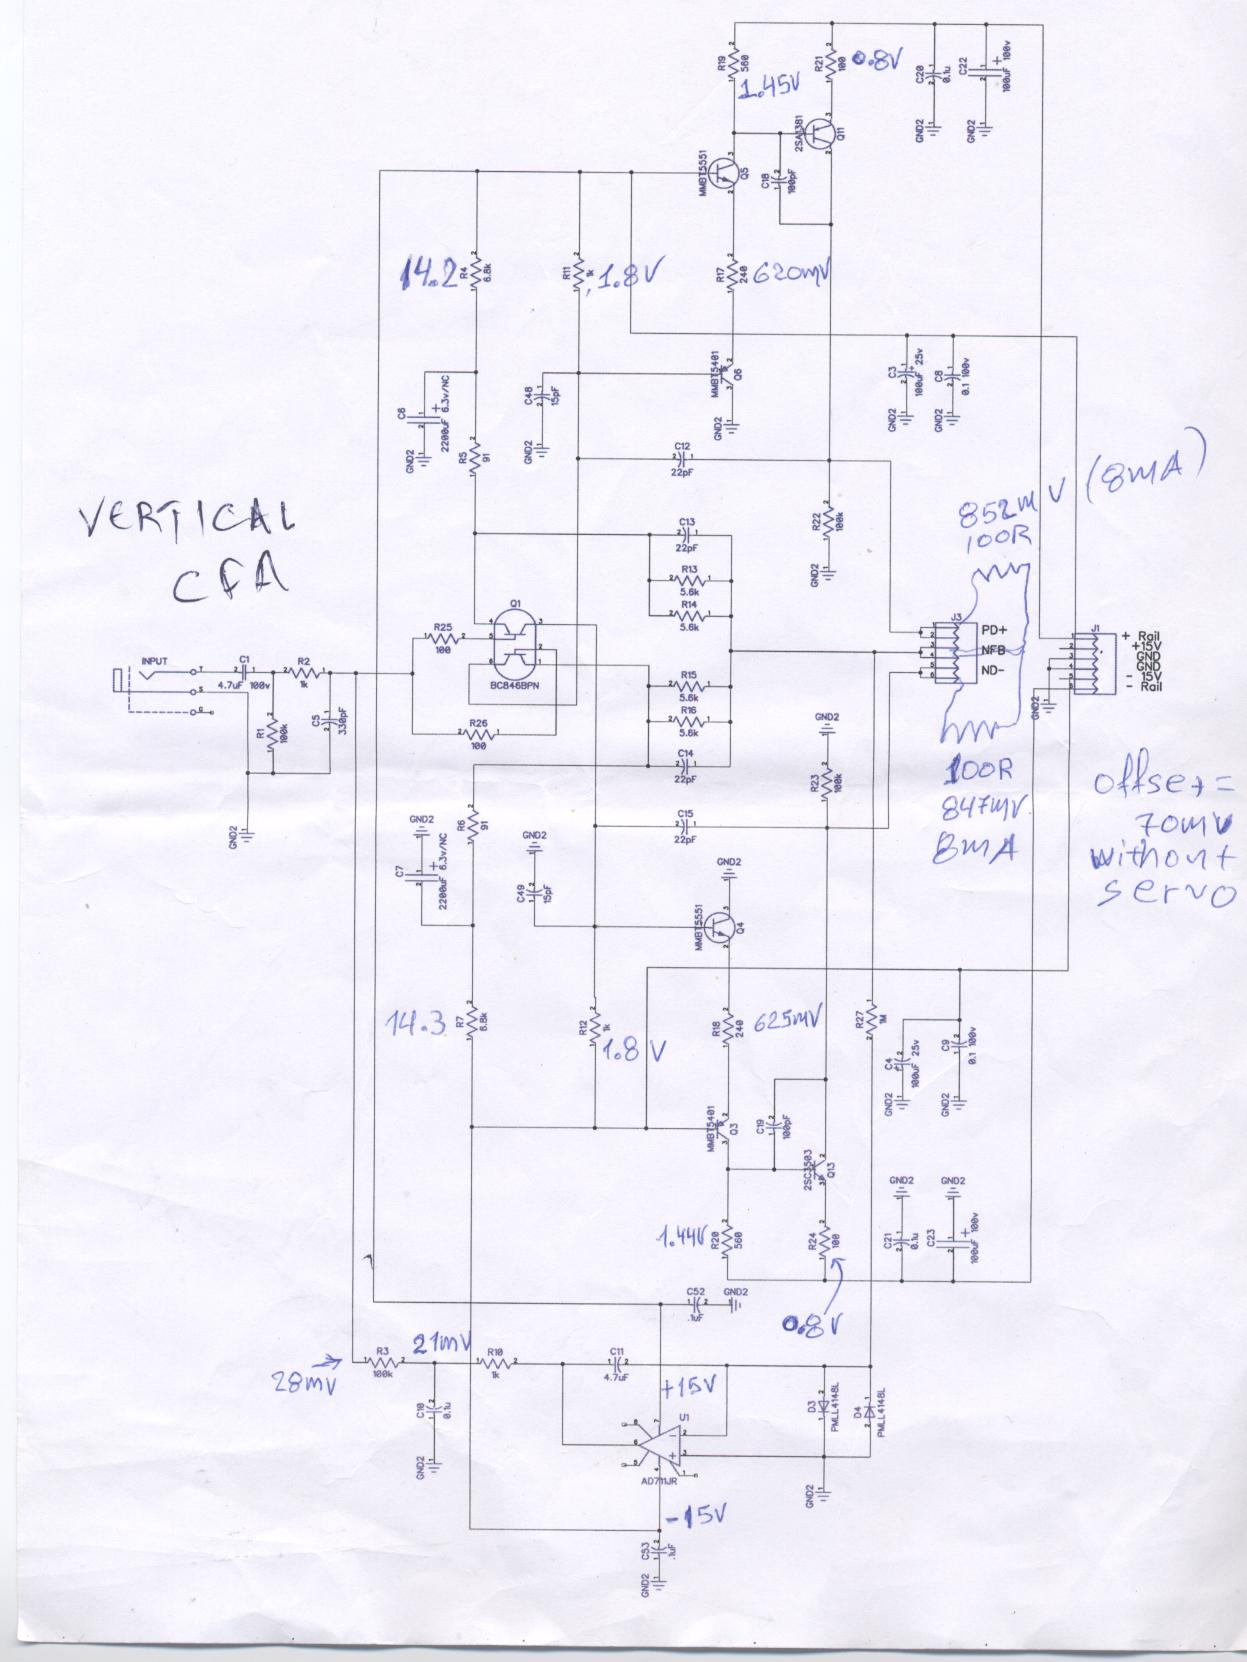 R19
560
1.45V
R21
100
0.8V
C20
0.1u
GND2
C22
100uF 100v
GND2
MMBT5551
Q5
2SA1381
Q11
C18
100pF
14.2
R4
6.8k
R11
1k
1.8V
R17
240
620mV
C6
2200uF 6.3v/NC
GND2
C48
15pF
GND2
MMBT5401
Q6
GND2
C3
100uF 25v
GND2
C8
0.1 100v
GND2
R5
91
C12
22pF
VERTICAL
CFA
R22
100k
GND2
852mV (8mA)
100R
C13
22pF
R13
5.6k
R14
5.6k
Q1
BC846BPN
R25
100
R26
100
INPUT
T
S
C1
4.7uF 100v
R2
1k
R1
100k
C5
330pF
GND2
R15
5.6k
R16
5.6k
C14
22pF
C15
22pF
J3
PD+
NFB
ND-
J1
+ Rail
+15V
GND
GND
- 15V
- Rail
GND2
GND2
R23
100k
100R
847mV
8mA
offset=
70mV
without
servo
R6
91
GND2
C7
2200uF 6.3v/NC
GND2
C49
15pF
GND2
MMBT5551
Q4
14.3
R7
6.8k
R12
1k
1.8V
R18
240
625mV
R27
1M
C4
100uF 25v
GND2
C9
0.1 100v
GND2
MMBT5401
Q3
C19
100pF
2SC3503
Q13
1.44V
R20
560
R24
100
0.8V
GND2
C21
0.1u
GND2
C23
100uF 100v
C52
.1uF
GND2
28mV
R3
100k
21mV
R10
1k
C11
4.7uF
C10
0.1u
GND2
+15V
AD711JR
-15V
D3
PMLL4148L
D4
PMLL4148L
GND2
C53
.1uF
GND2